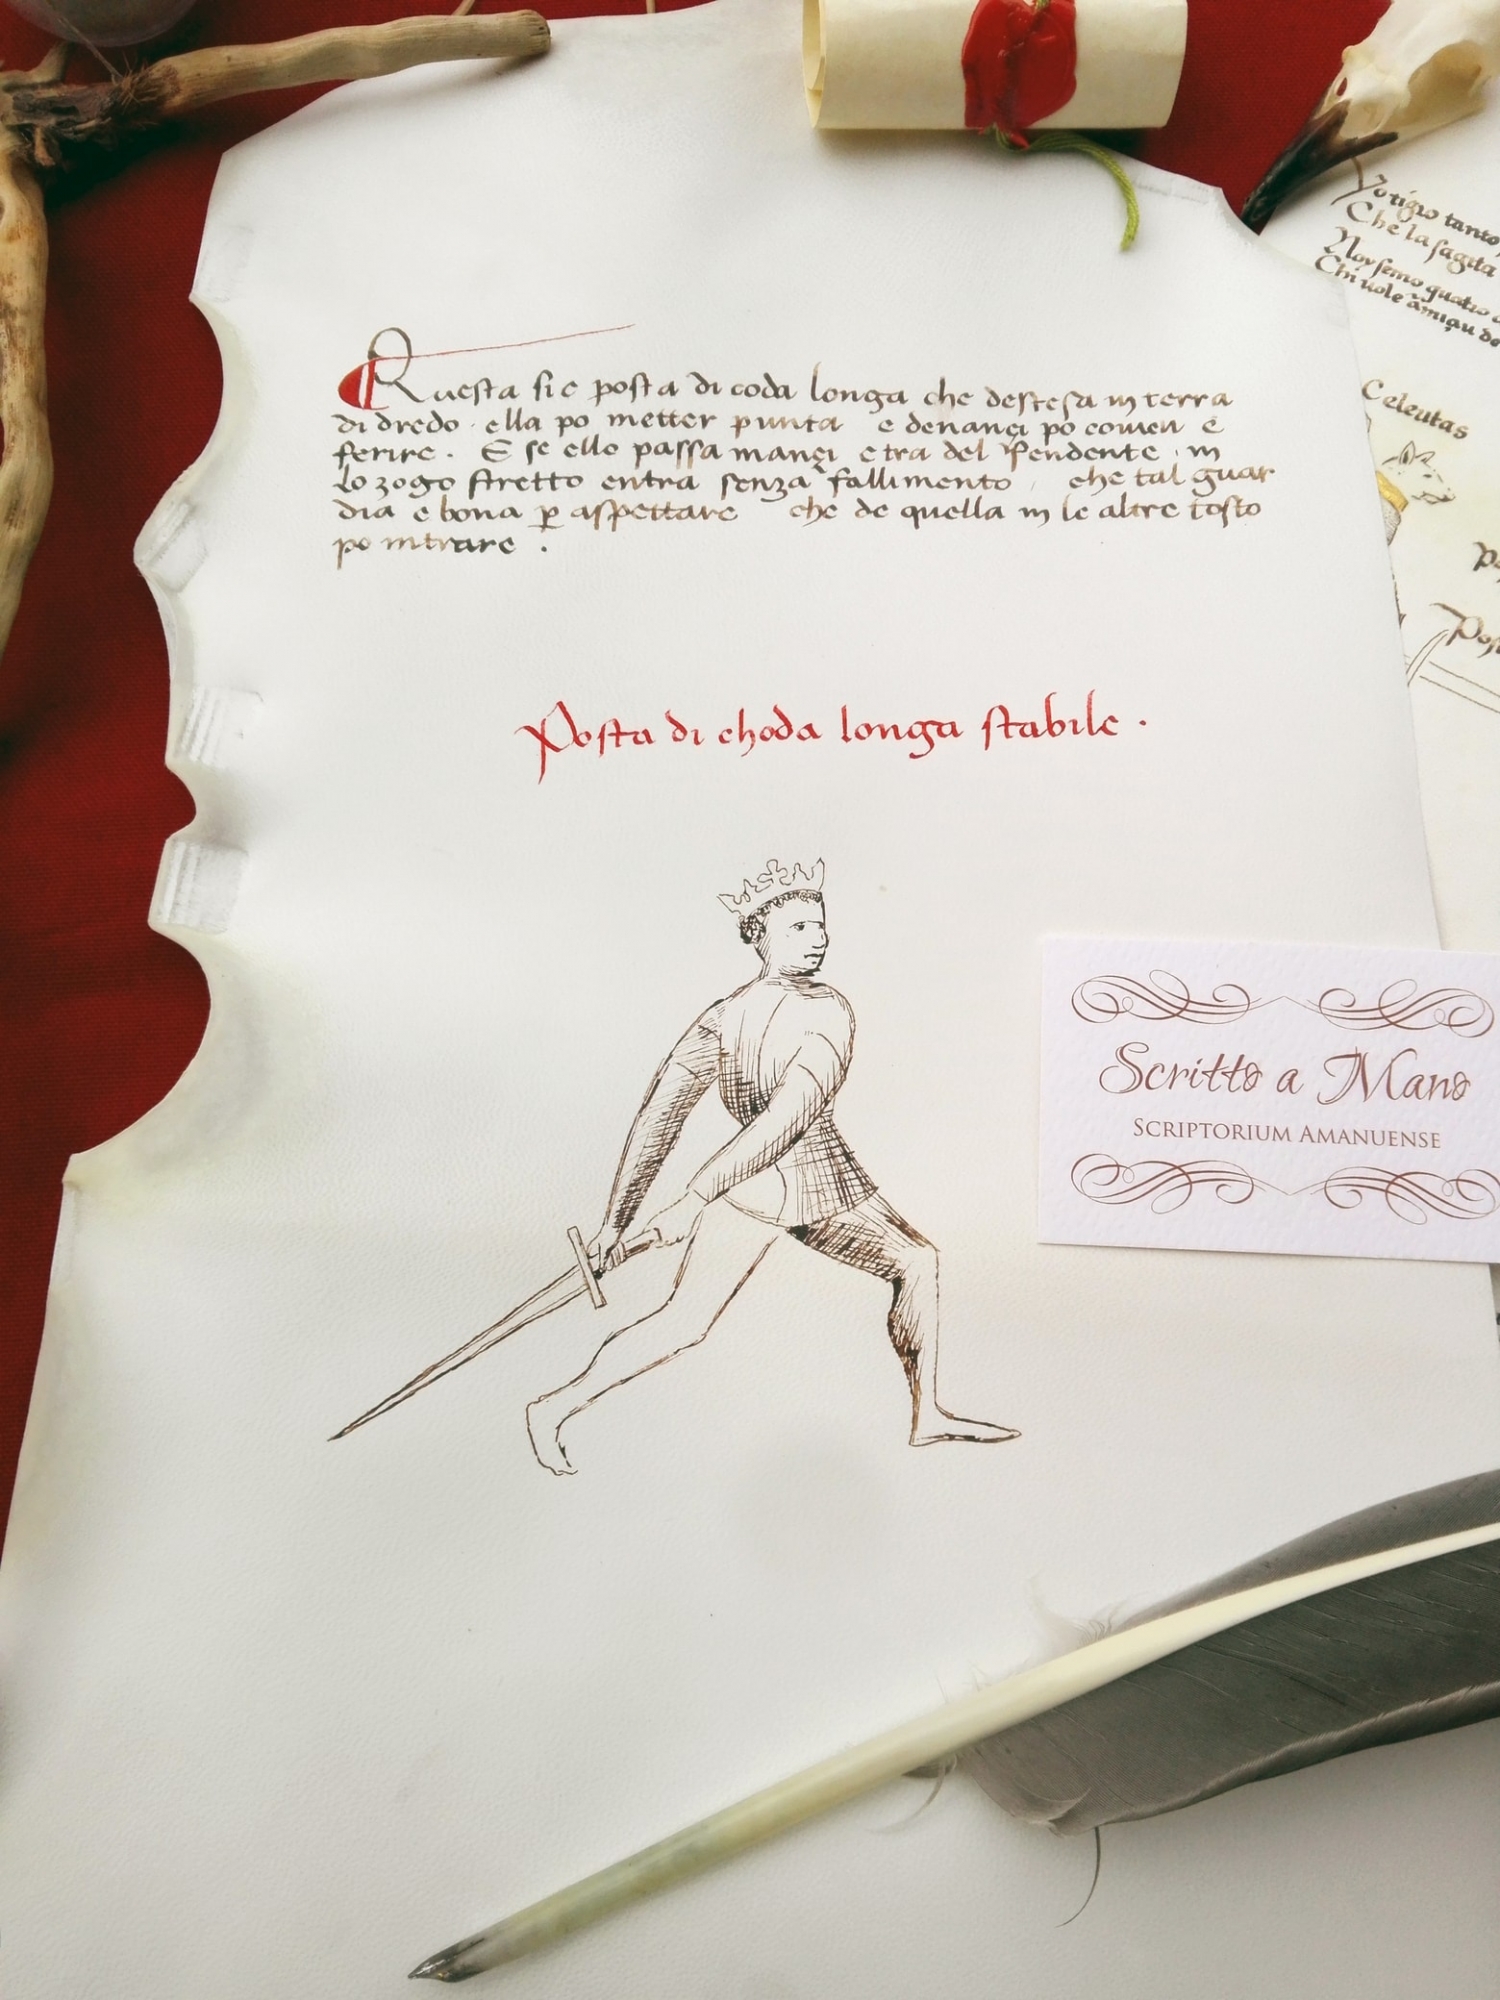 Questa sie posta di coda longa che destesa in terra
di dredo ella po metter punta e denançi po courir e
ferire. E se ello passa inançi e tra del fendente in
lo zogo stretto entra senza fallimento che tal guar
dia e bona p aspettare che de quella in le altre tosto
po intrare.
Posta di choda longa stabile.
Scritto a Mano
SCRIPTORIUM AMANUENSE
Yo tigro tanto
Che la sagita
Noy semo quatro
Chi uole
Celeutas